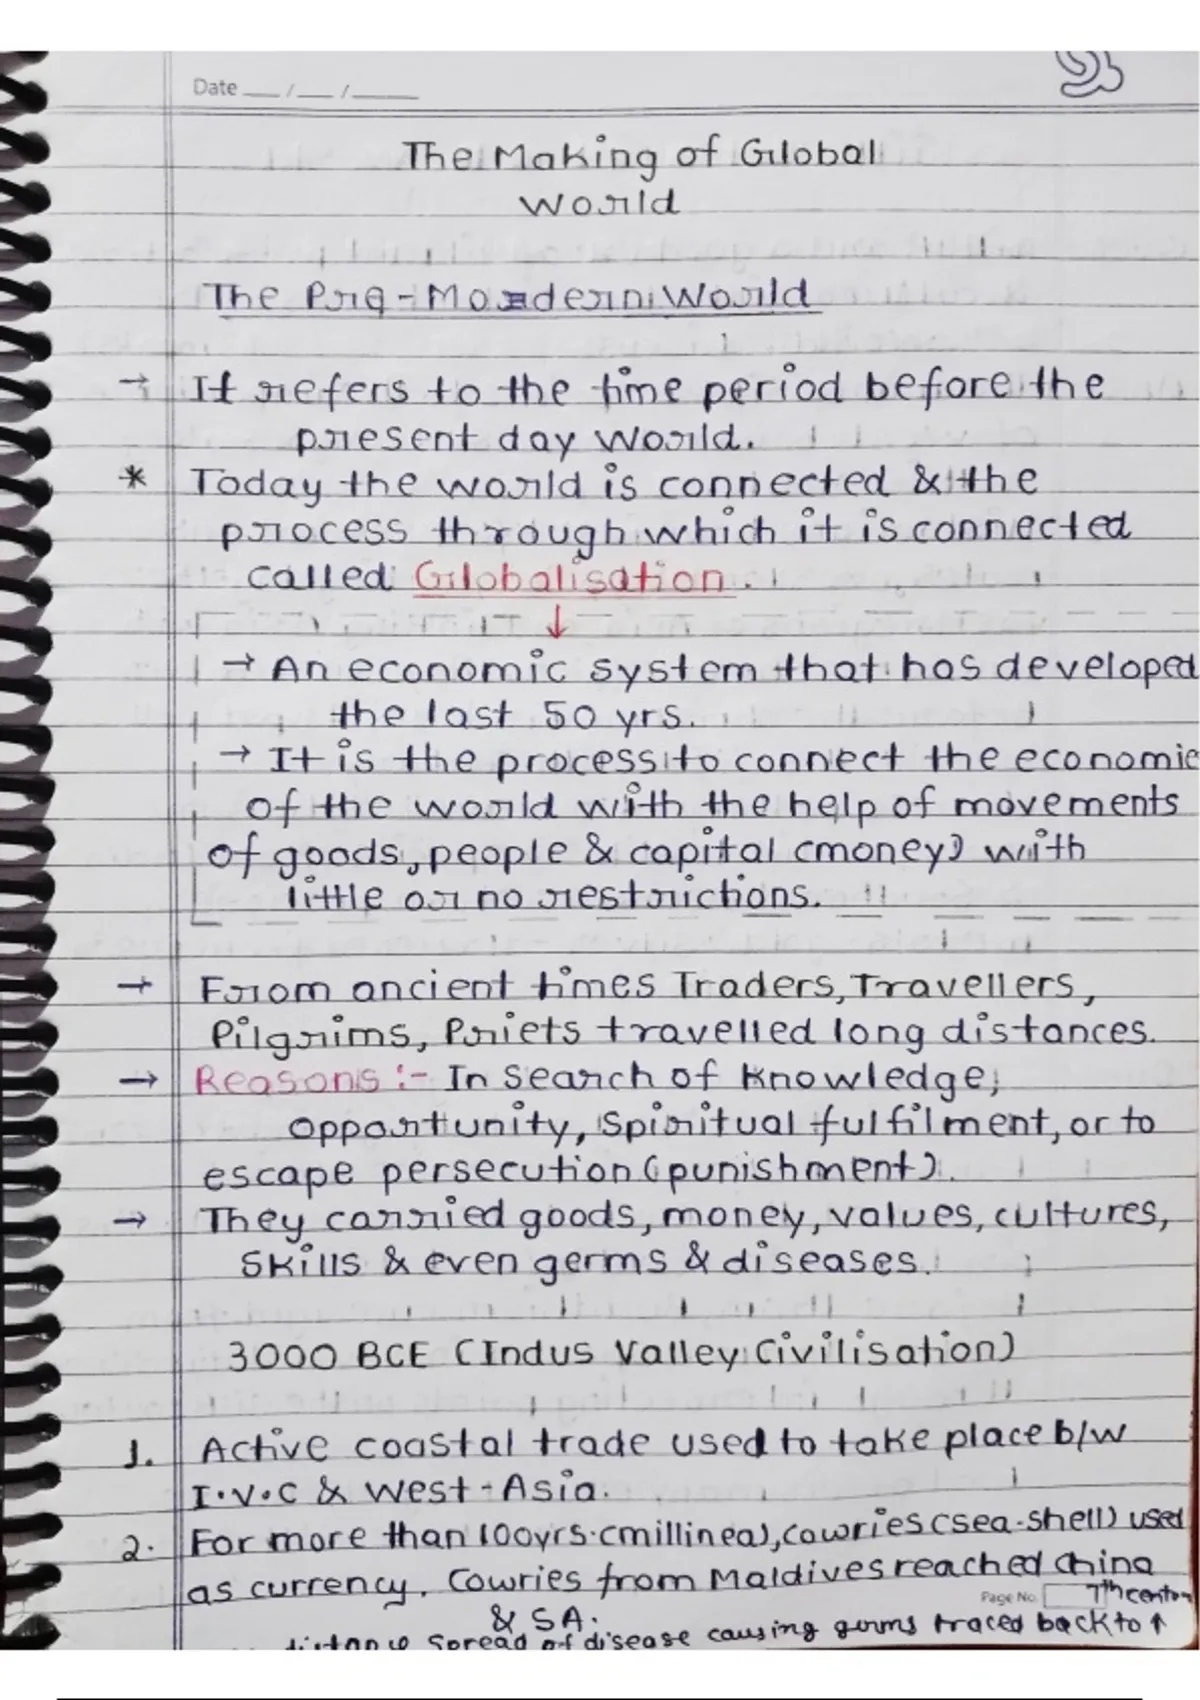 Date __/__/____
The Making of Global
World
The Pre-Modern World
→ It refers to the time period before the
present day world.
* Today the world is connected & the
process through which it is connected
called Globalisation.
↓
→ An economic system that has developed
the last 50 yrs.
→ It is the process to connect the economic
of the world with the help of movements
of goods, people & capital (money) with
little or no restrictions.
→ From ancient times Traders, Travellers,
Pilgrims, Priets travelled long distances.
→ Reasons :- In Search of Knowledge,
opportunity, Spiritual fulfilment, or to
escape persecution (punishment).
→ They carried goods, money, values, cultures,
Skills & even germs & diseases.
3000 BCE (Indus Valley Civilisation)
1. Active coastal trade used to take place b/w
I.V.C & West-Asia.
2. For more than 100yrs.(millinea), cowries (sea-shell) used
as currency. Cowries from Maldives reached China
Page No. 7th centor
& SA.
distance Spread of disease causing germs traced back to ↑